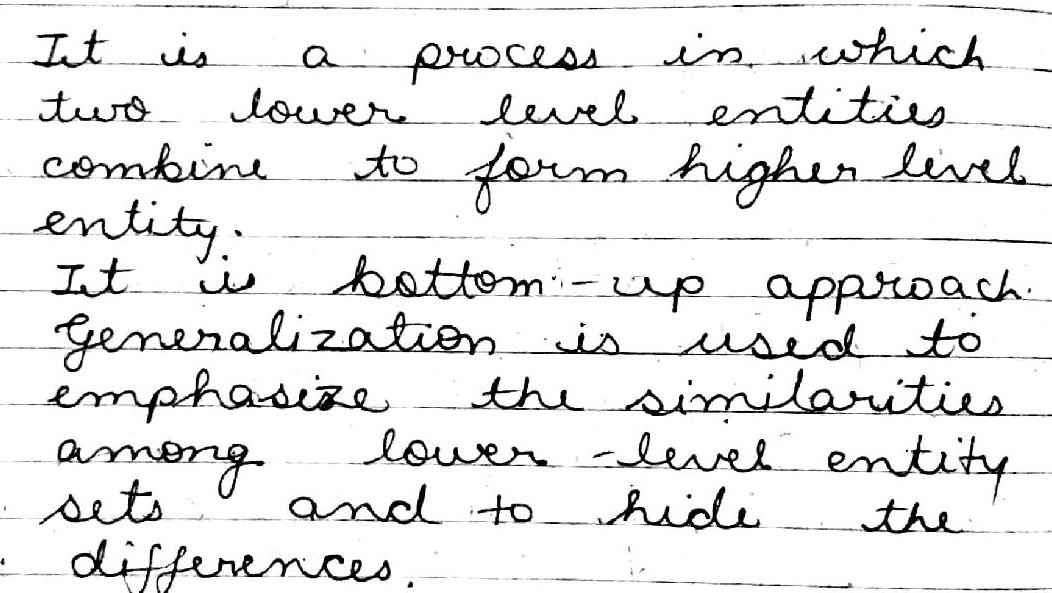 It is a process in which
two lower level entities
combine to form higher level
entity.
It is bottom-up approach.
Generalization is used to
emphasize the similarities
among lower-level entity
sets and to hide the
differences.